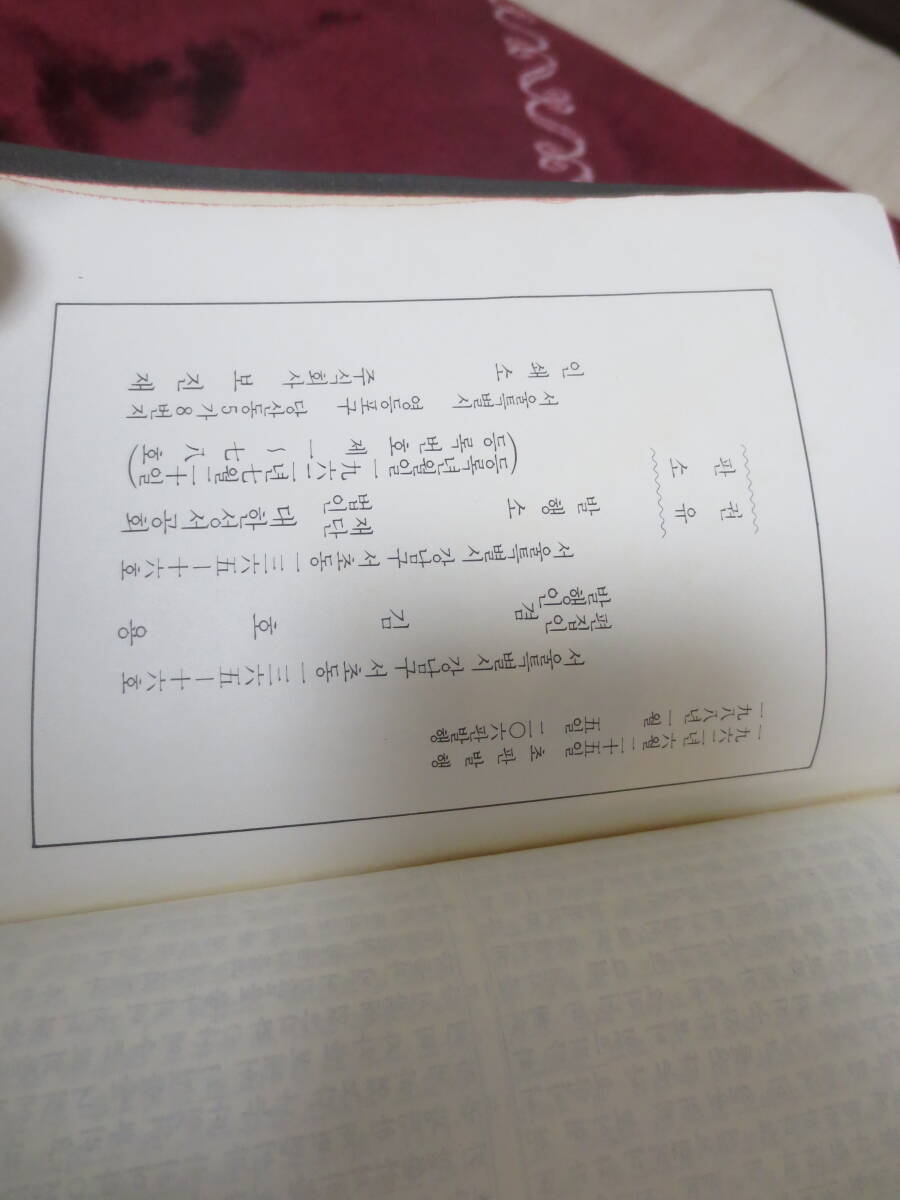 판 권
소 유
一九六二년 六월二十五일 초 판 발 행
一九八八년 一월 五일 二〇六판발행
서울특별시 강남구 서초동 一三六五—十六호
편집인
겸 김 호 용
발행인
서울특별시 강남구 서초동 一三六五—十六호
발 행 소 재단법인 대한성서공회
(등록년월일 一九六二년七월二十일
등록번호 제 一 ~ 七八호)
서울특별시 영등포구 당산동5가8번지
인 쇄 소 주식회사 보 진 재